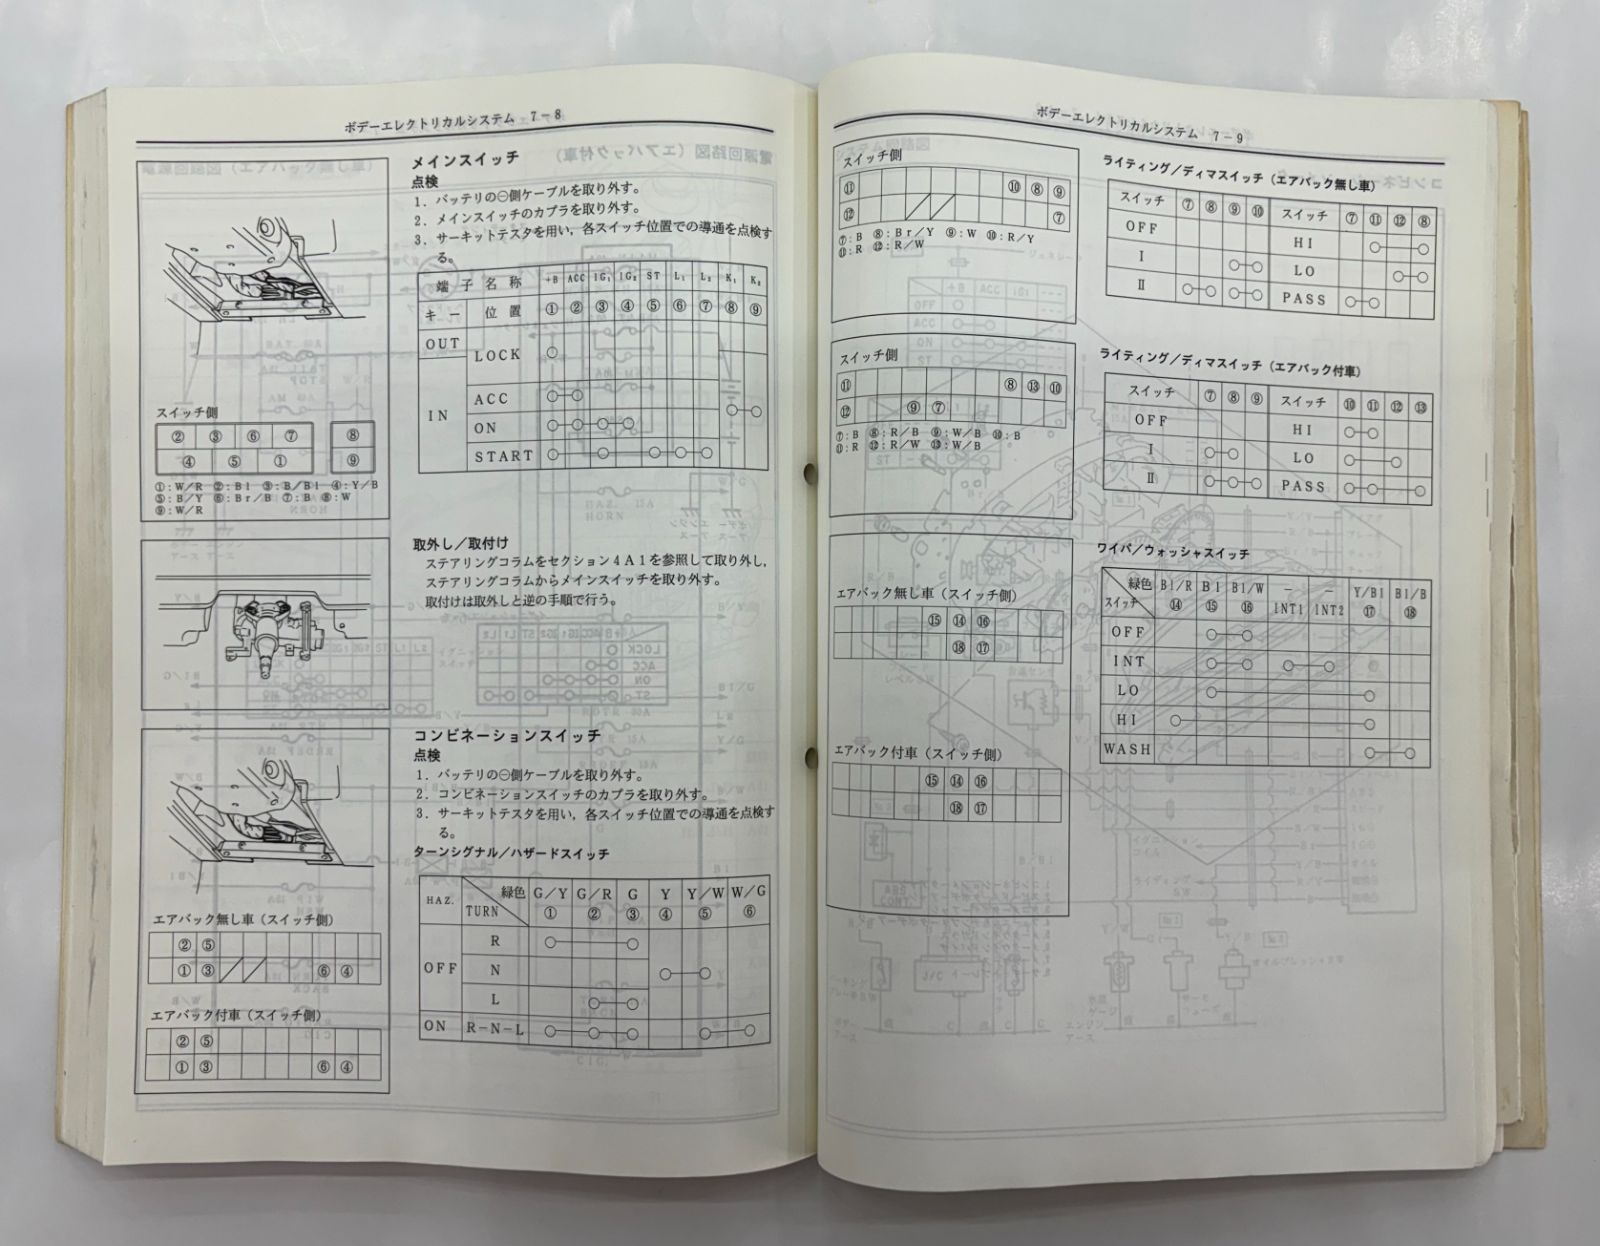 ボデーエレクトリカルシステム 7－8
スイッチ側
② ③ ⑥ ⑦ ⑧
④ ⑤ ① ⑨
①：W／R ②：Bl ③：B／Bl ④：Y／B
⑤：B／Y ⑥：Br／B ⑦：B ⑧：W
⑨：W／R
メインスイッチ
点検
1．バッテリの⊖側ケーブルを取り外す。
2．メインスイッチのカプラを取り外す。
3．サーキットテスタを用い，各スイッチ位置での導通を点検す
る。
端子名称 +B ACC IG₁ IG₂ ST L₁ L₂ K₁ K₂
キー 位置 ① ② ③ ④ ⑤ ⑥ ⑦ ⑧ ⑨
OUT
LOCK
IN
ACC
ON
START
取外し／取付け
ステアリングコラムをセクション4A1を参照して取り外し，
ステアリングコラムからメインスイッチを取り外す。
取付けは取外しと逆の手順で行う。
エアバック無し車（スイッチ側）
② ⑤
① ③ ⑥ ④
エアバック付車（スイッチ側）
② ⑤
① ③ ⑥ ④
コンビネーションスイッチ
点検
1．バッテリの⊖側ケーブルを取り外す。
2．コンビネーションスイッチのカプラを取り外す。
3．サーキットテスタを用い，各スイッチ位置での導通を点検す
る。
ターンシグナル／ハザードスイッチ
HAZ. TURN 緑色 G／Y G／R G Y Y／W W／G
① ② ③ ④ ⑤ ⑥
R
OFF N
L
ON R－N－L
ボデーエレクトリカルシステム 7－9
スイッチ側
⑪ ⑩ ⑧ ⑨
⑫ ⑦
⑦：B ⑧：Br／Y ⑨：W ⑩：R／Y
⑪：R ⑫：R／W
ライティング／ディマスイッチ（エアバック無し車）
スイッチ ⑦ ⑧ ⑨ ⑩ スイッチ ⑦ ⑪ ⑫ ⑧
OFF HI
I LO
II PASS
スイッチ側
⑪ ⑧ ⑬ ⑩
⑫ ⑨ ⑦
⑦：B ⑧：R／B ⑨：W／B ⑩：B
⑪：R ⑫：R／W ⑬：W／B
ライティング／ディマスイッチ（エアバック付車）
スイッチ ⑦ ⑧ ⑨ スイッチ ⑩ ⑪ ⑫ ⑬
OFF HI
I LO
II PASS
エアバック無し車（スイッチ側）
⑮ ⑭ ⑯
⑱ ⑰
エアバック付車（スイッチ側）
⑮ ⑭ ⑯
⑱ ⑰
ワイパ／ウォッシャスイッチ
緑色 Bl／R Bl Bl／W － － Y／Bl Bl／B
スイッチ ⑭ ⑮ ⑯ INT1 INT2 ⑰ ⑱
OFF
INT
LO
HI
WASH